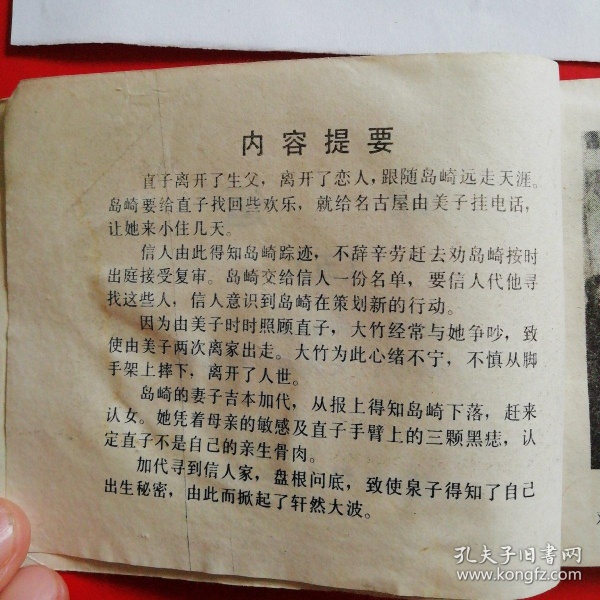 内容提要
直子离开了生父，离开了恋人，跟随岛崎远走天涯。
岛崎要给直子找回些欢乐，就给名古屋由美子挂电话，
让她来小住几天。
信人由此得知岛崎踪迹，不辞辛劳赶去劝岛崎按时
出庭接受复审。岛崎交给信人一份名单，要信人代他寻
找这些人，信人意识到岛崎在策划新的行动。
因为由美子时时照顾直子，大竹经常与她争吵，致
使由美子两次离家出走。大竹为此心绪不宁，不慎从脚
手架上摔下，离开了人世。
岛崎的妻子吉本加代，从报上得知岛崎下落，赶来
认女。她凭着母亲的敏感及直子手臂上的三颗黑痣，认
定直子不是自己的亲生骨肉。
加代寻到信人家，盘根问底，致使泉子得知了自己
出生秘密，由此而掀起了轩然大波。
孔夫子旧书网
www.kongfz.com